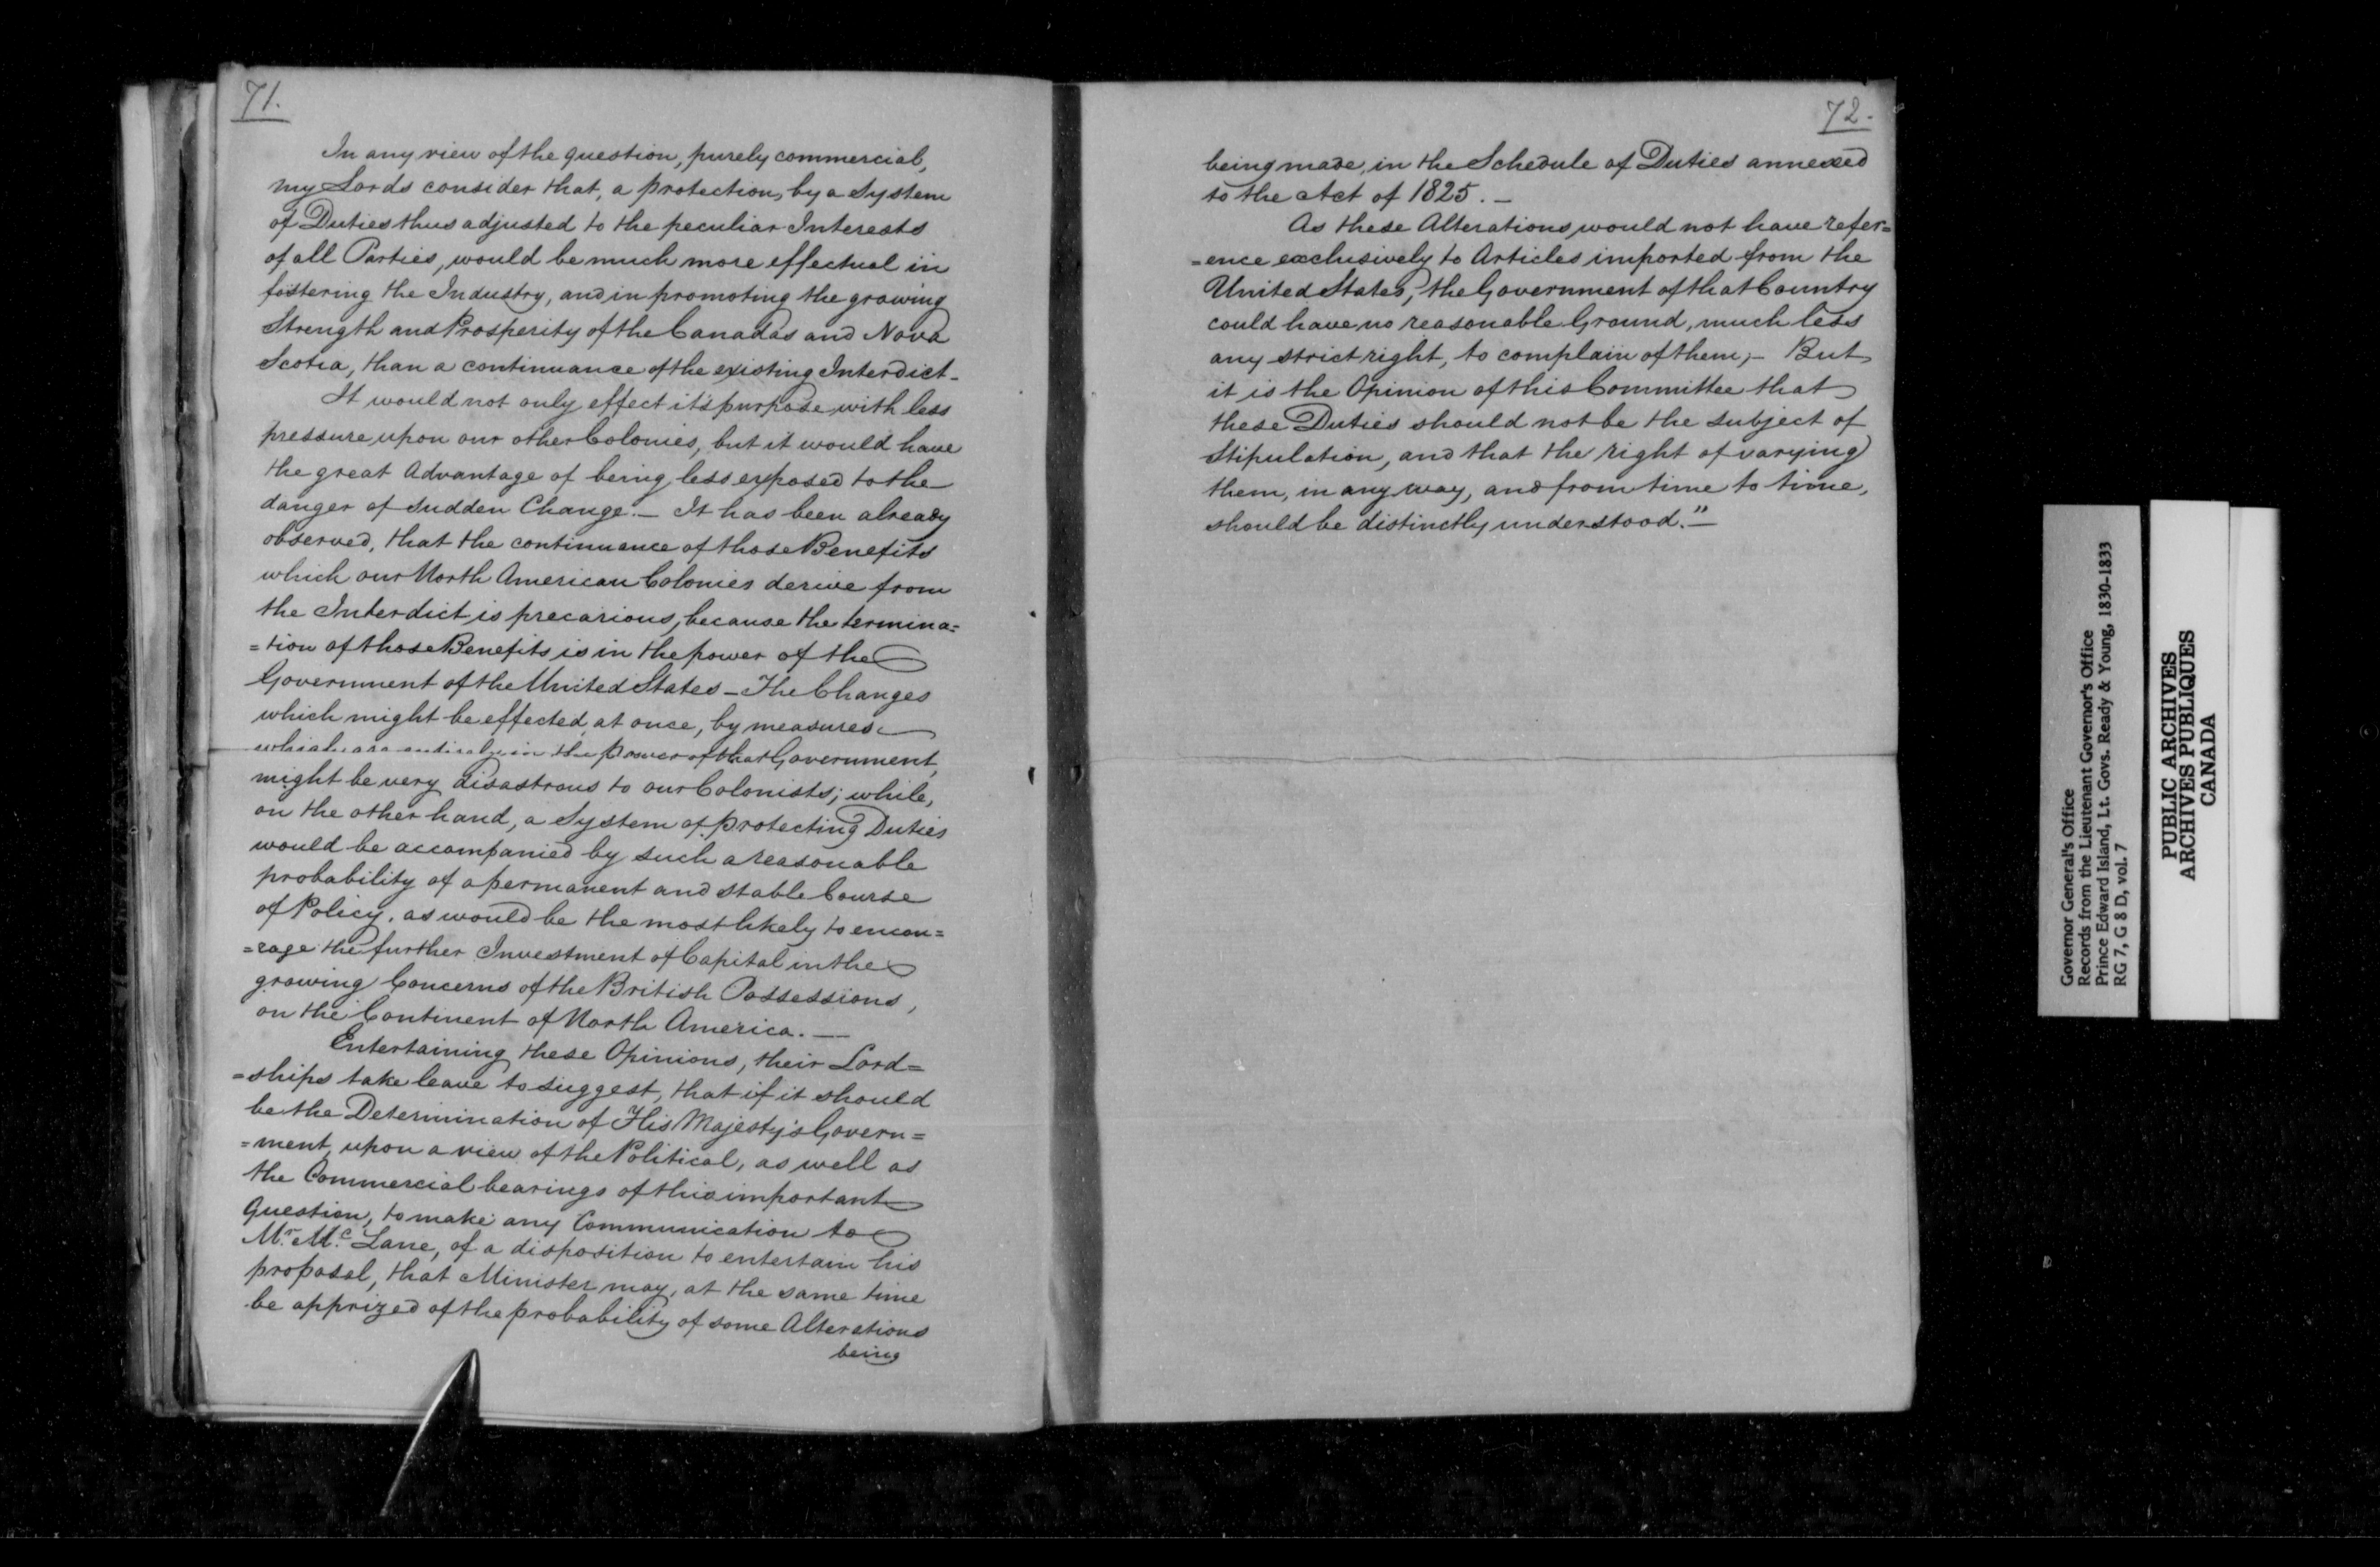 71.
In any view of the question, purely commercial,
my Lords consider that, a protection, by a System
of Duties thus adjusted to the peculiar Interests
of all Parties, would be much more effectual in
fostering the Industry, and in promoting the growing
Strength and Prosperity of the Canadas and Nova
Scotia, than a continuance of the existing Interdict_
It would not only effect it's purpose with less
pressure upon our other Colonies, but it would have
the great Advantage of being less exposed to the
danger of sudden Change._ It has been already
observed, that the continuance of those Benefits
which our North American Colonies derive from
the Interdict is precarious, because the termina=
=tion of those Benefits is in the power of the
Government of the United States _ The Changes
which might be effected, at once, by measures
which are entirely in the power of that Government,
might be very disastrous to our Colonists; while,
on the other hand, a System of protecting Duties
would be accompanied by such a reasonable
probability of a permanent and stable Course
of Policy, as would be the most likely to encou=
=rage the further Investment of Capital in the
growing Concerns of the British Possessions,
on the Continent of North America. _
Entertaining these Opinions, their Lord=
=ships take leave to suggest, that if it should
be the Determination of His Majesty's Govern=
=ment, upon a view of the Political, as well as
the Commercial bearings of this important
Question, to make any Communication to
Mr. Mc. Lane, of a disposition to entertain his
proposal, that Minister may, at the same time
be apprized of the probability of some Alterations
being
72.
being made, in the Schedule of Duties annexed
to the Act of 1825. _
As these Alterations would not have refer=
=ence exclusively to Articles imported from the
United States, the Government of that Country
could have no reasonable Ground, much less
any strict right, to complain of them; _ But
it is the Opinion of this Committee that
these Duties should not be the subject of
Stipulation, and that the right of varying
them, in any way, and from time to time,
should be distinctly understood." _
Governor General's Office
Records from the Lieutenant Governor's Office
Prince Edward Island, Lt. Govs. Ready & Young, 1830-1833
RG 7, G 8 D, vol. 7
PUBLIC ARCHIVES
ARCHIVES PUBLIQUES
CANADA